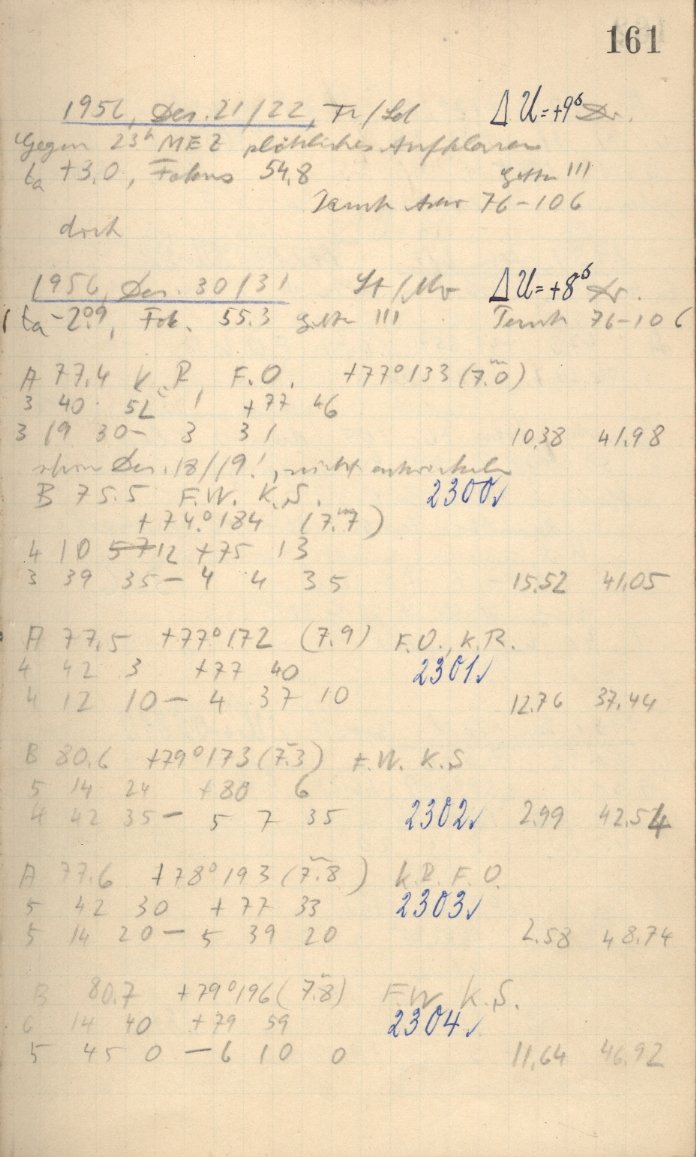 161
1956, Dez. 21/22, Fr/Ld ΔU=+9ˢ Dr.
Gegen 23ʰ MEZ plötzliches Aufklaren
ta +3,0, Fokus 54,8 III
76-106
doch
1956, Dez. 30/31 ΔU=+8ˢ Dr.
ta -2°9, Fok. 55.3 III 76-106
A 77,4 K.R. F.O. +77°133 (7.ᵐ0)
3 40 52 +77 46
3 19 30 - 3 31 10,38 41,98
schon Dez. 18/19!, nicht entwickeln
B 75.5 F.W. K.S. 2300√
+74°184 (7.ᵐ7)
4 10 12 +75 13
3 39 35 - 4 4 35 15,52 41,05
A 77,5 +77°172 (7,9) F.O. K.R.
4 42 3 +77 40 2301√
4 12 10 - 4 37 10 12,76 37,44
B 80.6 +79°173 (7.3) F.W. K.S
5 14 24 +80 6
4 42 35 - 5 7 35 2302√ 2,99 42,54
A 77.6 +78°193 (7.ᵐ8) K.R. F.O.
5 42 30 +77 33 2303√
5 14 20 - 5 39 20 2.58 48.74
B 80.7 +79°196 (7.ᵐ8) F.W. K.S.
6 14 40 +79 59 2304√
5 45 0 - 6 10 0 11,64 46,92